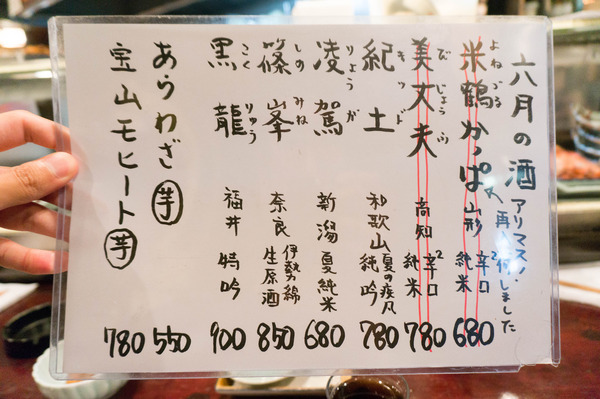 六月の酒
アリマスノ
再入荷しました
よねづる
米鶴かっぱ 山形 純米 辛口² 680
びじょうふ
美丈夫 高知 純米 辛口² 780
きっど
紀土 和歌山 夏の疾風 純吟 780
りょうが
凌駕 新潟 夏純米 680
しのみね
篠峯 奈良 伊勢錦 生原酒 850
こくりゅう
黒龍 福井 特吟 900
あらわざ 芋 550
宝山モヒート 芋 780